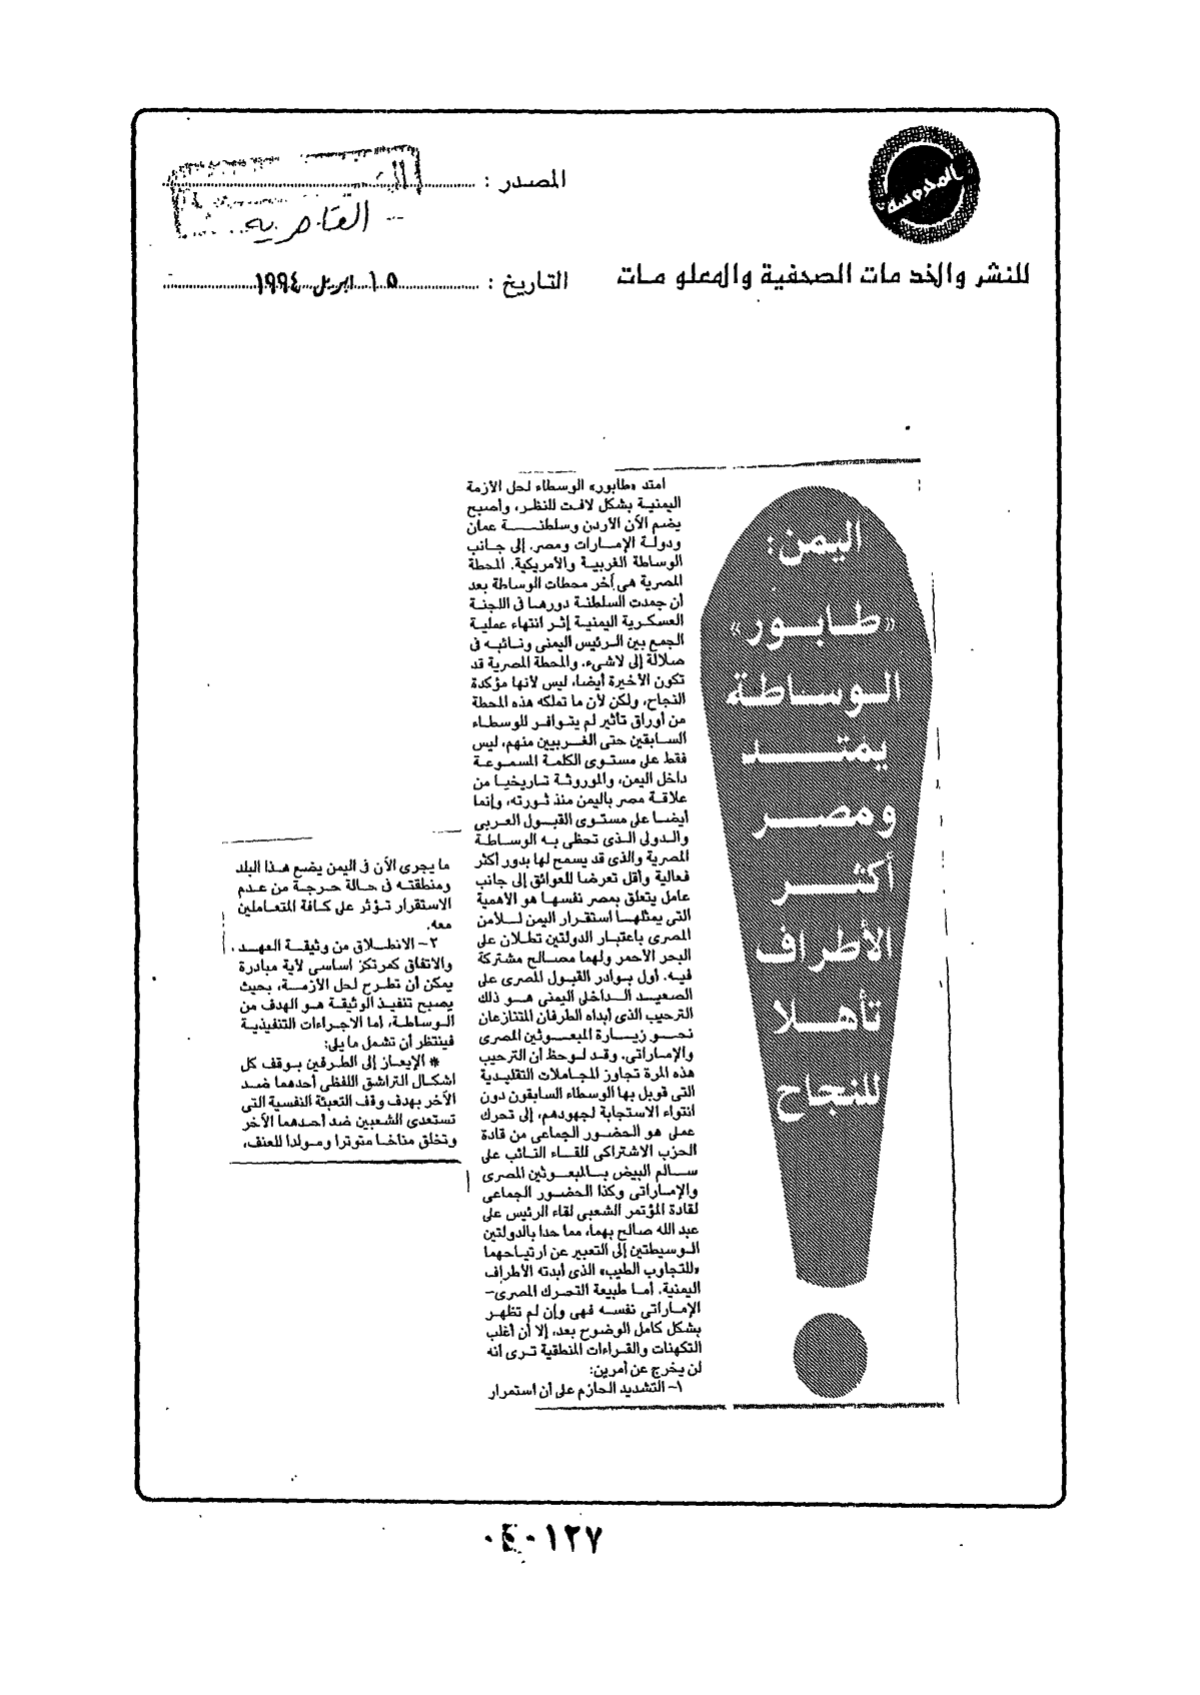 المحروسة
للنشر والخدمات الصحفية والمعلومات
المصدر :
القاهرية
التاريخ : ١٥ ابريل ١٩٩٤
اليمن:
«طابور»
الوساطة
يمتد
ومصر
أكثر
الأطراف
تأهلا
للنجاح
امتد «طابور» الوسطاء لحل الأزمة
اليمنية بشكل لافت للنظر، وأصبح
يضم الآن الأردن وسلطنة عمان
ودولة الإمارات ومصر، إلى جانب
الوساطة الغربية والأمريكية. المحطة
المصرية هى آخر محطات الوساطة بعد
أن جمدت السلطنة دورها فى اللجنة
العسكرية اليمنية إثر انتهاء عملية
الجمع بين الرئيس اليمنى ونائبه فى
صلالة إلى لاشىء. والمحطة المصرية قد
تكون الأخيرة أيضا، ليس لأنها مؤكدة
النجاح، ولكن لأن ما تملكه هذه المحطة
من أوراق تأثير لم يتوافر للوسطاء
السابقين حتى الغربيين منهم، ليس
فقط على مستوى الكلمة المسموعة
داخل اليمن، والموروثة تاريخيا من
علاقة مصر باليمن منذ ثورته، وإنما
أيضا على مستوى القبول العربى
والدولى الذى تحظى به الوساطة
المصرية والذى قد يسمح لها بدور أكثر
فعالية وأقل تعرضا للعوائق إلى جانب
عامل يتعلق بمصر نفسها هو الأهمية
التى يمثلها استقرار اليمن للأمن
المصرى باعتبار الدولتين تطلان على
البحر الأحمر ولهما مصالح مشتركة
فيه. أول بوادر القبول المصرى على
الصعيد الداخلى اليمنى هو ذلك
الترحيب الذى أبداه الطرفان المتنازعان
نحو زيارة المبعوثين المصرى
والإماراتى. وقد لوحظ أن الترحيب
هذه المرة تجاوز المجاملات التقليدية
التى قوبل بها الوسطاء السابقون دون
انتواء الاستجابة لجهودهم، إلى تحرك
عملى هو الحضور الجماعى من قادة
الحزب الاشتراكى للقاء النائب على
سالم البيض بالمبعوثين المصرى
والإماراتى وكذا الحضور الجماعى
لقادة المؤتمر الشعبى لقاء الرئيس على
عبد الله صالح بهما، مما حدا بالدولتين
الوسيطتين إلى التعبير عن ارتياحهما
«للتجاوب الطيب» الذى أبدته الأطراف
اليمنية. أما طبيعة التحرك المصرى-
الإماراتى نفسه فهى وإن لم تظهر
بشكل كامل الوضوح بعد، إلا أن أغلب
التكهنات والقراءات المنطقية ترى أنه
لن يخرج عن أمرين:
١- التشديد الحازم على أن استمرار
ما يجرى الآن فى اليمن يضع هذا البلد
ومنطقته فى حالة حرجة من عدم
الاستقرار تؤثر على كافة المتعاملين
معه.
٢- الانطلاق من وثيقة العهد
والاتفاق كمرتكز أساسى لاية مبادرة
يمكن أن تطرح لحل الأزمة، بحيث
يصبح تنفيذ الوثيقة هو الهدف من
الوساطة، أما الاجراءات التنفيذية
فينتظر أن تشمل ما يلى:
* الإيعاز إلى الطرفين بوقف كل
اشكال التراشق اللفظى أحدهما ضد
الآخر بهدف وقف التعبئة النفسية التى
تستعدى الشعبين ضد أحدهما الآخر
وتخلق مناخا متوترا ومولدا للعنف،
٠٤٠١٢٧